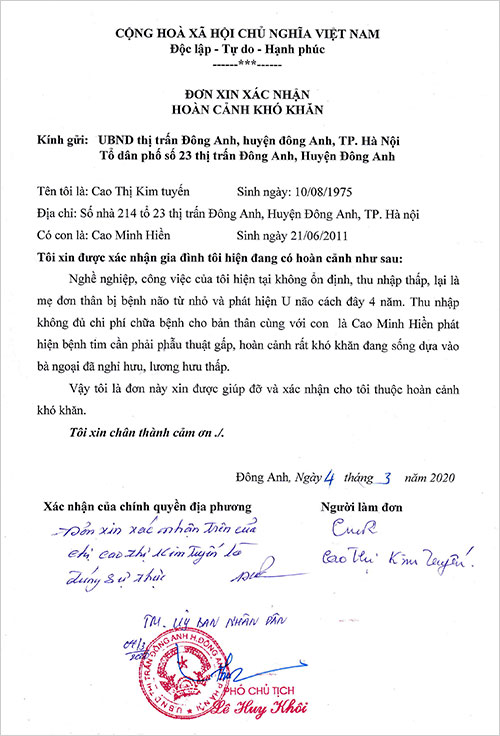 CỘNG HOÀ XÃ HỘI CHỦ NGHĨA VIỆT NAM
Độc lập - Tự do - Hạnh phúc
------***------
ĐƠN XIN XÁC NHẬN
HOÀN CẢNH KHÓ KHĂN
Kính gửi: UBND thị trấn Đông Anh, huyện đông Anh, TP. Hà Nội
Tổ dân phố số 23 thị trấn Đông Anh, Huyện Đông Anh
Tên tôi là: Cao Thị Kim tuyến Sinh ngày: 10/08/1975
Địa chỉ: Số nhà 214 tổ 23 thị trấn Đông Anh, Huyện Đông Anh, TP. Hà nội
Có con là: Cao Minh Hiền Sinh ngày 21/06/2011
Tôi xin được xác nhận gia đình tôi hiện đang có hoàn cảnh như sau:
Nghề nghiệp, công việc của tôi hiện tại không ổn định, thu nhập thấp, lại là
mẹ đơn thân bị bệnh não từ nhỏ và phát hiện U não cách đây 4 năm. Thu nhập
không đủ chi phí chữa bệnh cho bản thân cùng với con là Cao Minh Hiền phát
hiện bệnh tim cần phải phẫu thuật gấp, hoàn cảnh rất khó khăn đang sống dựa vào
bà ngoại đã nghỉ hưu, lương hưu thấp.
Vậy tôi là đơn này xin được giúp đỡ và xác nhận cho tôi thuộc hoàn cảnh
khó khăn.
Tôi xin chân thành cảm ơn ./.
Đông Anh, Ngày 4 tháng 3 năm 2020
Xác nhận của chính quyền địa phương Người làm đơn
Đơn xin xác nhận trên của
chị Cao thị Kim Tuyến là
đúng sự thực
Cao Thị Kim Tuyến.
TM. UỶ BAN NHÂN DÂN
04/3
PHÓ CHỦ TỊCH
Lê Huy Khôi